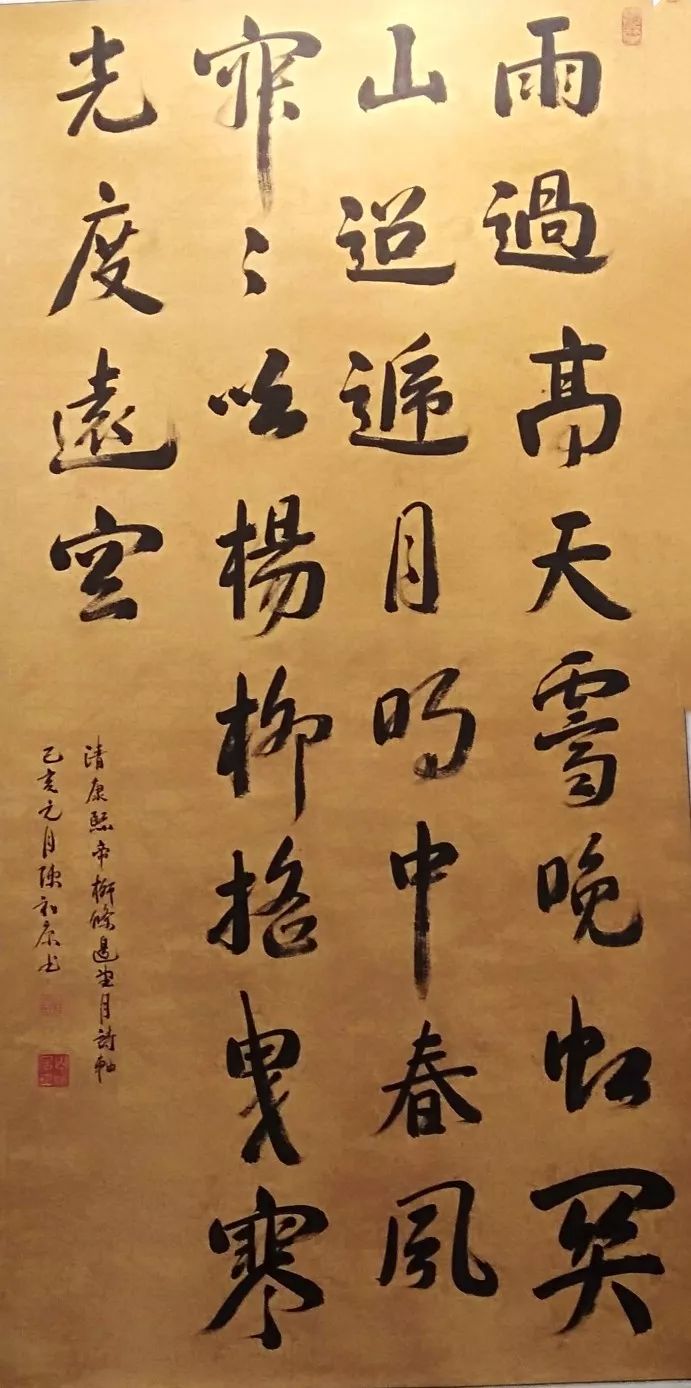 雨過高天霽晚虹関
山迢遞月明中春風
寂〻吹楊柳搖曳寒
光度遠空
清康熙帝柳條邊望月詩軸
己亥元月陳